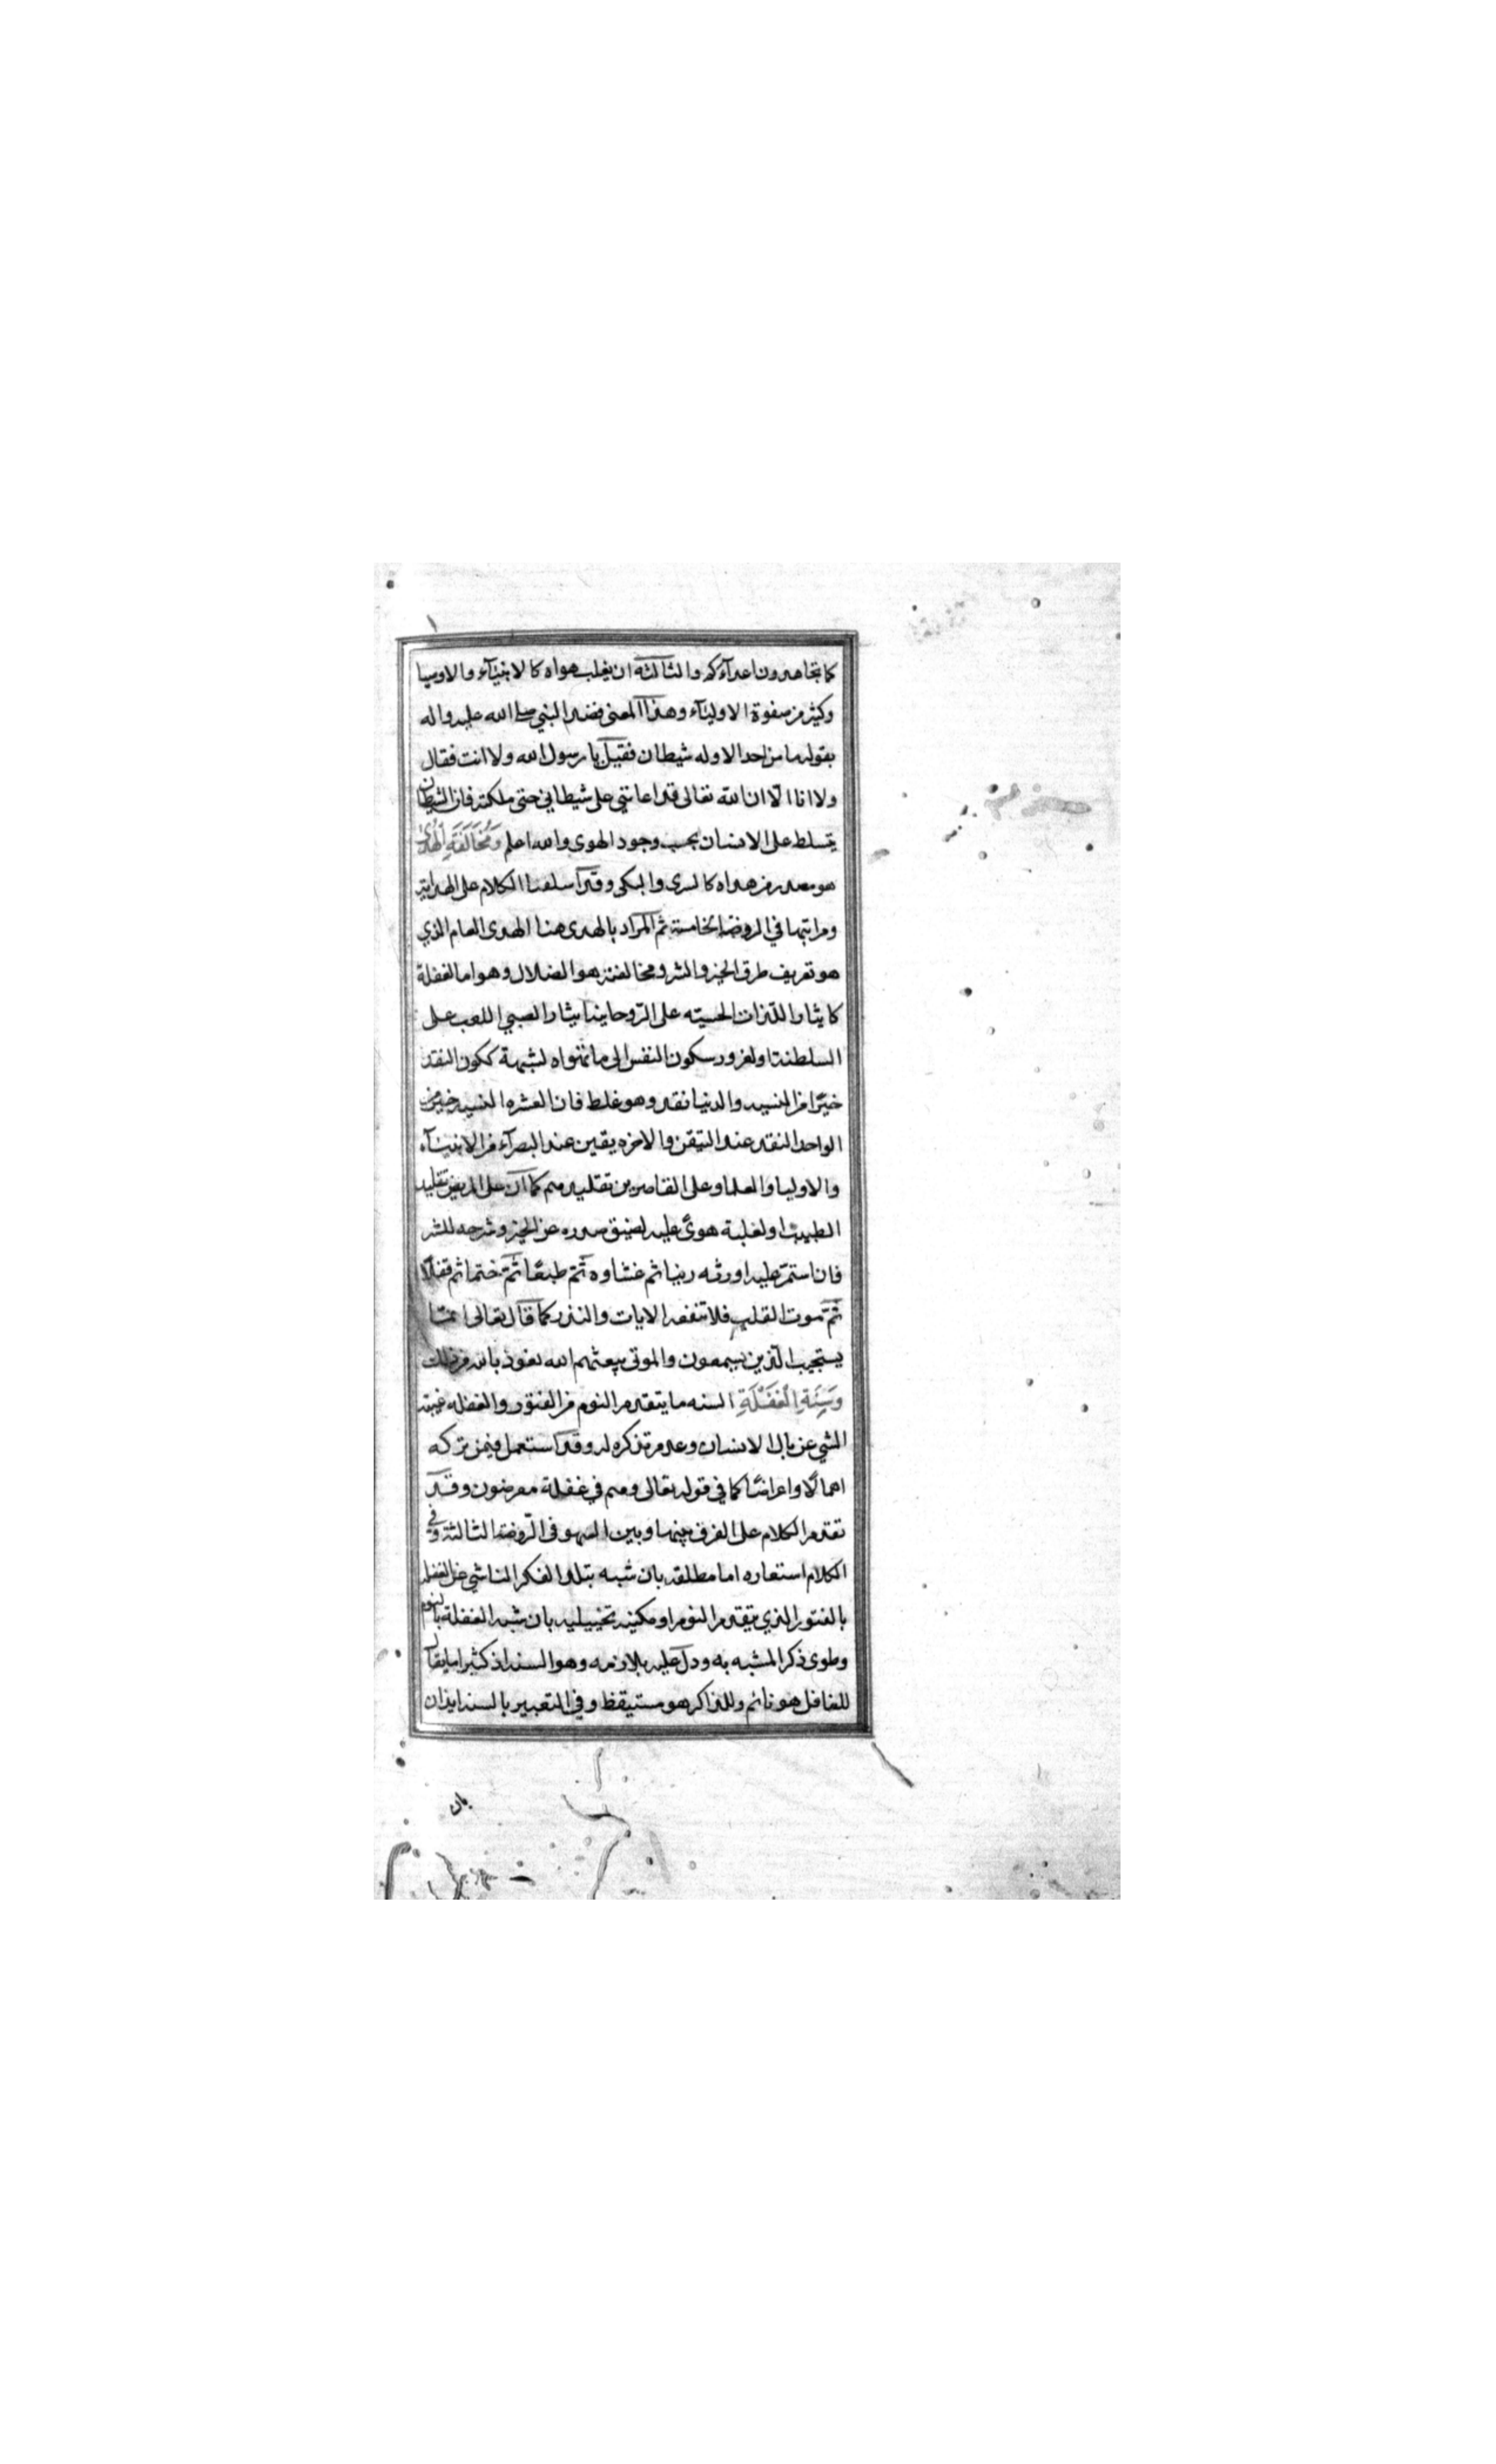 كما تجاهدون اعدآءكم والثالثة ان يغلب هواه كالانبيآء والاوصيا
وكثير من صفوة الاوليآء وهذا المعنى قصد النبي صلى الله عليه واله
بقوله ما من احد الا وله شيطان فقيل يا رسول الله ولا انت فقال
ولا انا الّا ان الله تعالى قد اعانني على شيطاني حتى ملكته فان الشيطان
يتسلط على الانسان بحسب وجود الهوى والله اعلم وَمُخَالَفَةِ الْهُدىٰ
هو مصدر من هداه كالسرى والبكى وقد اسلفنا الكلام على الهداية
ومراتبها في الروضة الخامسة ثم المراد بالهدى هنا الهدى العام الذي
هو تعريف طرق الخير والشر ومخالفته هو الضلال وهو اما لغفلة
كايثار اللذات الحسيّه على الرّوحانية ايثار الصبي اللعب على
السلطنة او لغرور سكون النفس الى ما تهواه لشبهة ككون النقد
خيرًا من النسيه والدنيا نقد وهو غلط فان العشره النسيه خير من
الواحد النقد عند التيقن والاخره يقين عند البصرآء من الانبيآء
والاوليا والعلما وعلى القاصرين تقليدهم كما ان على المريض تقليد
الطبيب او لغلبة هوىً عليه لضيق صدره عن الخير وشرحه للشر
فان استمرّ عليه اورثه رينا ثم غشاوه ثمّ طبعًا ثمّ ختما ثم قفلًا
ثمّ موت القلب فلا تنفعه الايات والنذر كما قال تعالى انمّا
يستجيب الّذين يسمعون والموتى يبعثهم الله نعوذ بالله من ذلك
وَسِنَةِ الْغَفْلَةِ السنه ما يتقدم النوم من الفتور والغفله غيبة
الشي عن بال الانسان وعدم تذكره له وقد استعمل فيمن تركه
اهمالًا واعراضًا كما في قوله تعالى وهم في غفلة معرضون وقد
تقدم الكلام على الفرق بينها وبين السهو في الرّوضة الثالثة وفي
الكلام استعاره اما مطلقه بان شبه تبلد الفكر الناشي عن الغفله
بالفتور الذي يتقدم النوم او مكنيه تخييليه بان شبه الغفلة بالنوم
وطوى ذكر المشبه به ودل عليه بلازمه وهو السنه اذ كثيرا ما يقال
للغافل هو نائم وللذاكر هو مستيقظ وفي التعبير بالسنه ايذان
بان